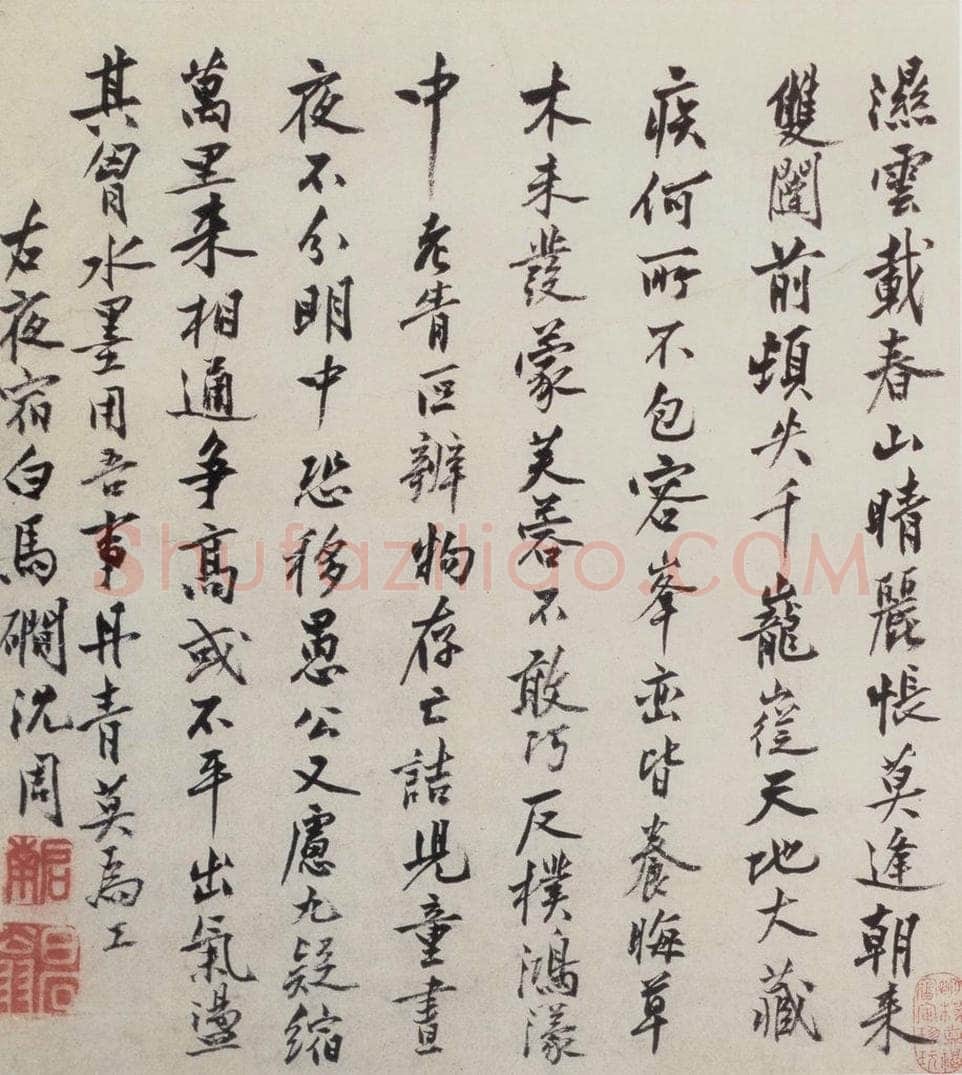 濕雲載春山晴麗悵莫逢朝来
雙闥前頓失千巃嵸天地大藏
疾何所不包容峯巒皆養晦草
木未發蒙芙蓉不敢巧反樸鴻濛
中老眚叵辨物存亡詰児童晝
夜不分明中恐移愚公又慮九疑縮
萬里来相通爭髙或不平出氣盪
其胷水墨用吾事丹青莫為工
右夜宿白馬磵沈周
Shufaziliao.COM